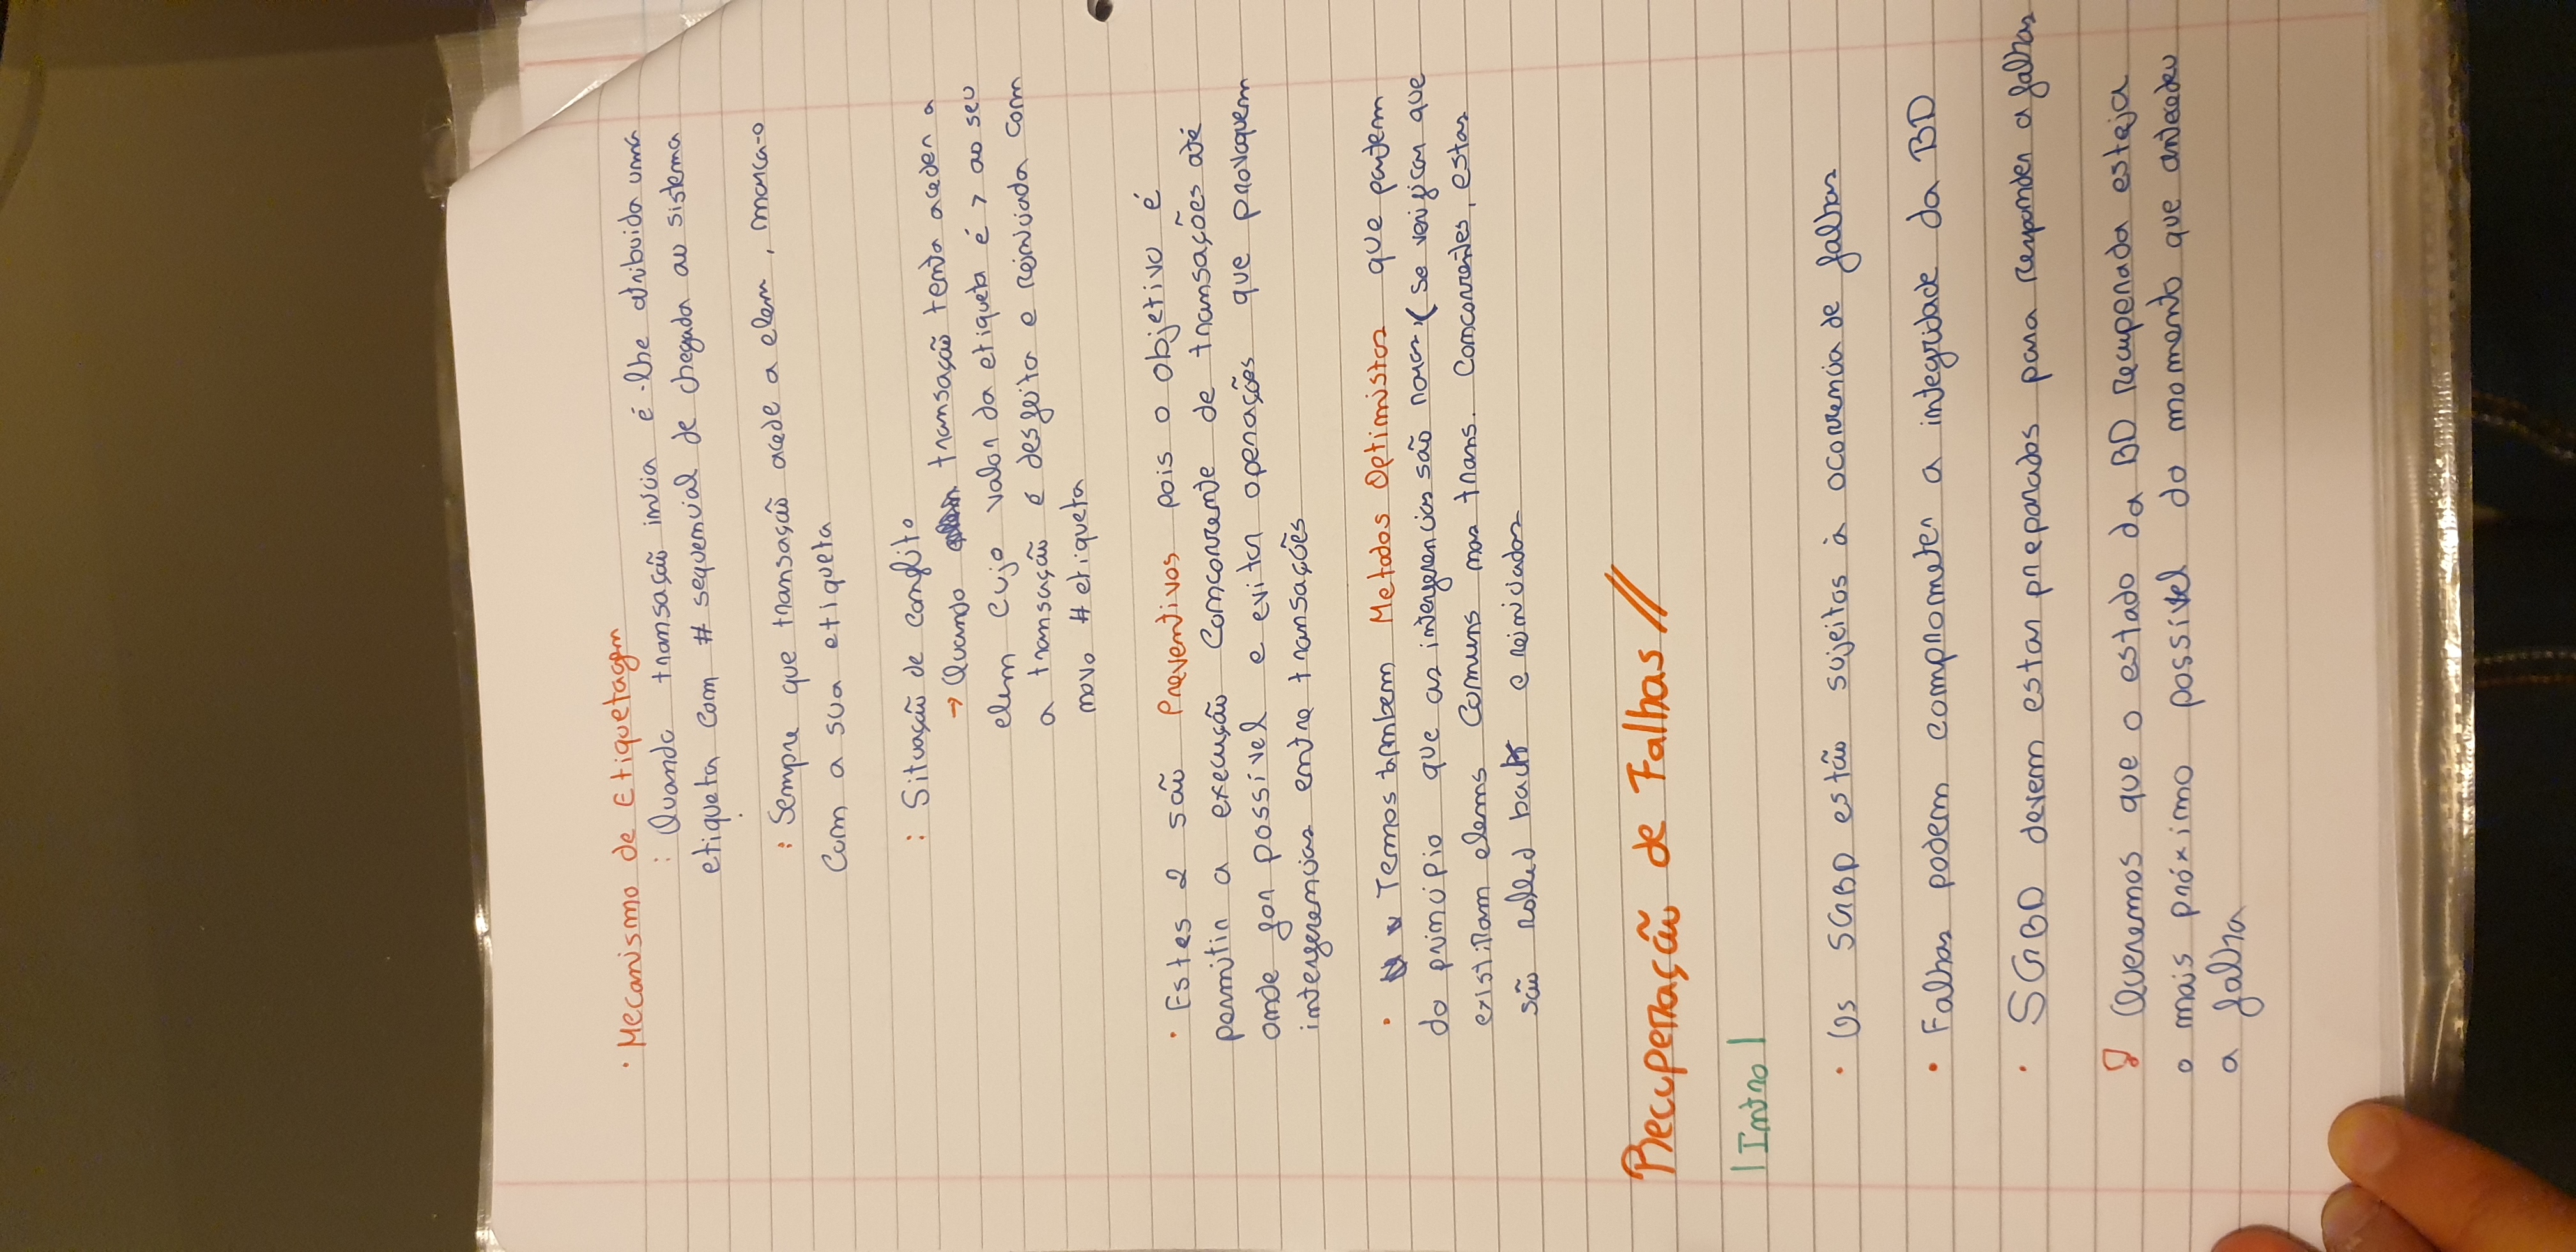 · Mecanismo de Etiquetagem
: Quando transação inicia é-lhe atribuida uma
etiqueta com # sequencial de chegada ao sistema
: Sempre que transação acede a elem, marca-o
com a sua etiqueta
: Situação de conflito
→ Quando transação tenta aceder a
elem cujo valor da etiqueta é > ao seu
a transação é desfeita e reiniciada com
novo # etiqueta
· Estes 2 são Preventivos pois o objetivo é
permitir a execução concorrente de transações até
onde for possível e evitar operações que provoquem
interferencias entre transações
· Temos tambem Metodos Optimistas que partem
do principio que as interferencias são raras, (se verificar que
existiram elems comuns nas trans. concorrentes, estas
são rolled back e reiniciadas
Recuperação de Falhas //
| Intro |
· Os SGBD estão sujeitos à ocorrencia de falhas
· Falhas podem comprometer a integridade da BD
· SGBD devem estar preparados para responder a falhas
! Queremos que o estado da BD recuperada esteja
o mais próximo possível do momento que antecedeu
a falha